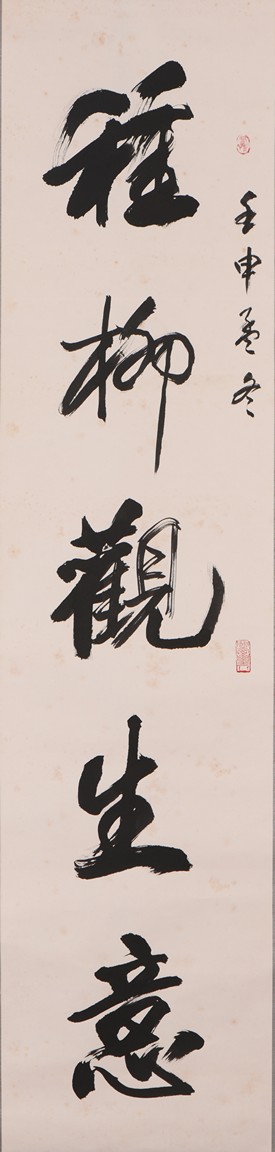 壬申孟冬
種柳觀生意